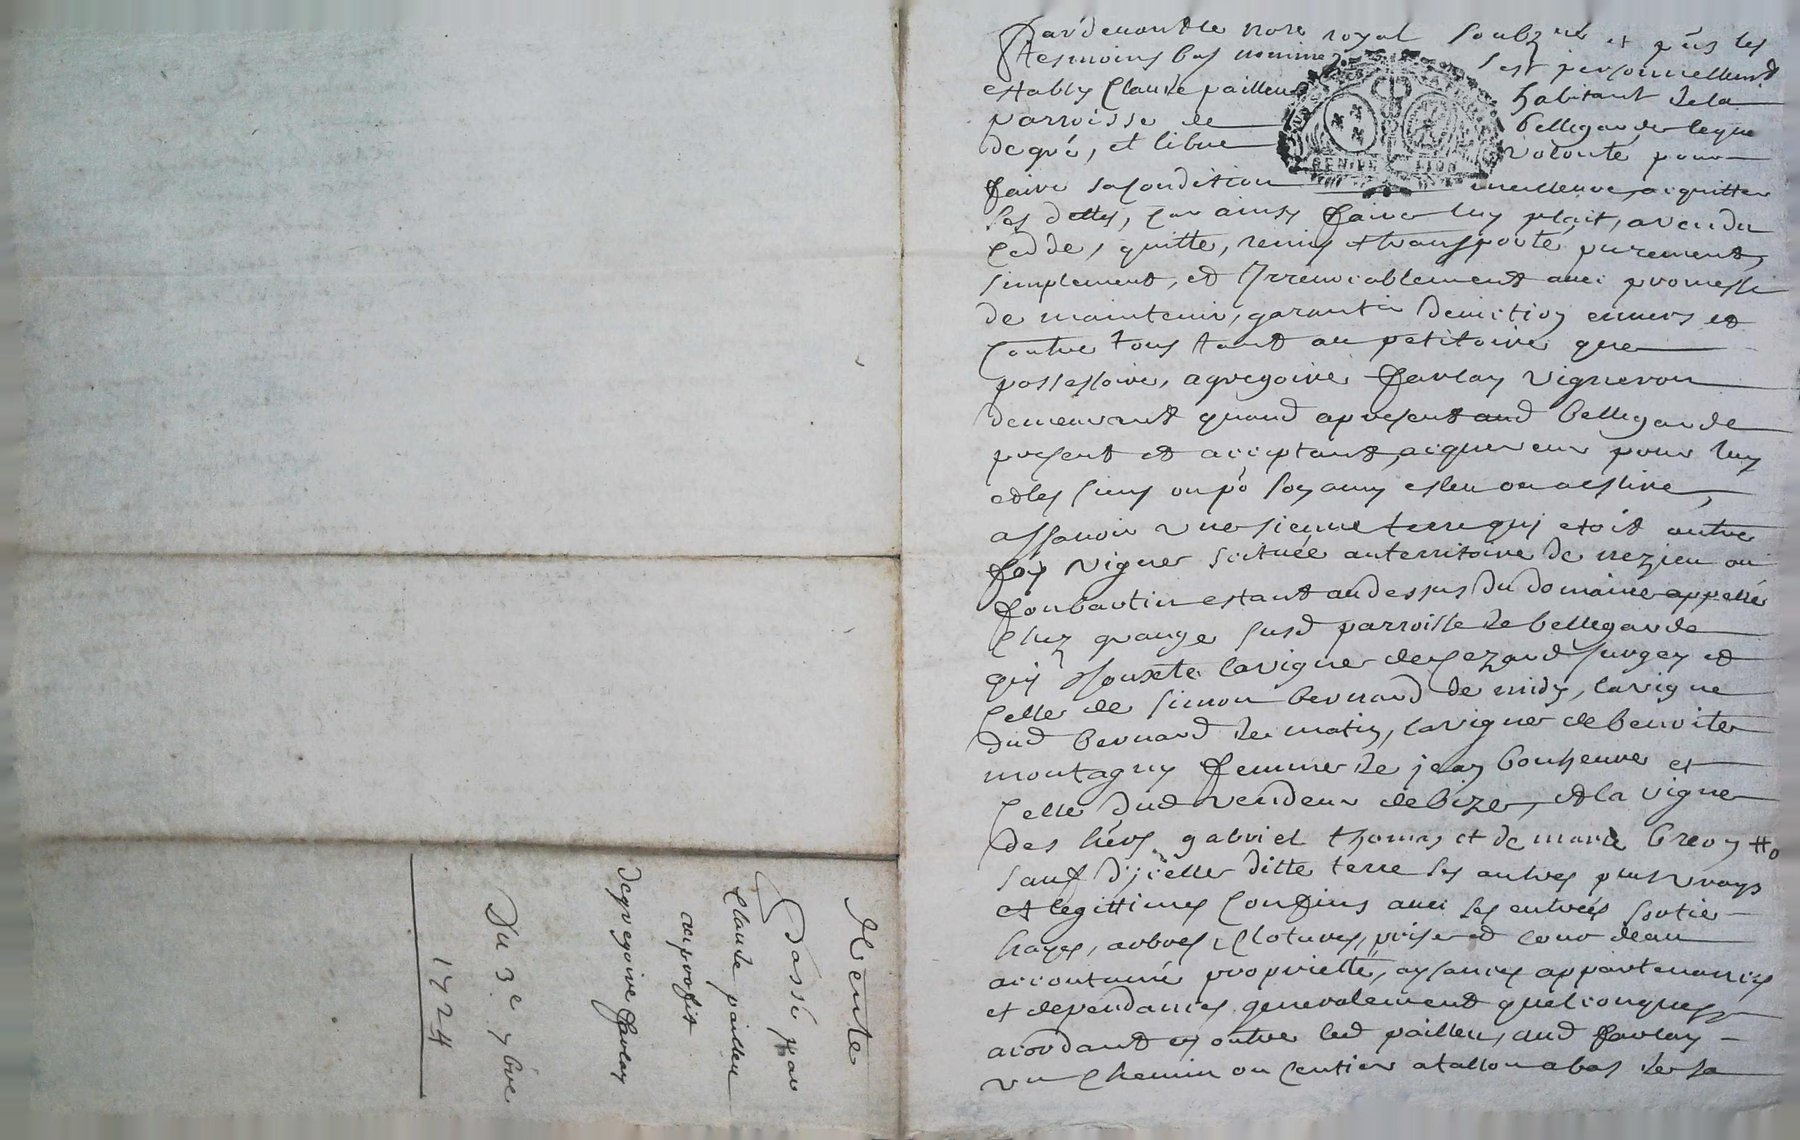 Pardevant le nore royal soubzné et pñs les
tesmoins bas nommez s'est personnellemt
estably Claude pailleu habitant de la
parroisse de bellegarde lequel
de gré, et libre volonte pour
faire sa condition meilleure, acquitter
ses dettes, car ainsy faire luy plait, a vendu
cedde, quitte, remis et transporté purement,
simplement, et Irrevocablement avec promesse
de maintenir, garantir deviction envers et
contre tous tant au petitoire que
possessoire, a gregoire favlay vigneron
demeurant quand apresent aud bellegarde
present et acceptant, acquereur pour luy
et les siens ou pō son amy esleu ou a eslire,
assavoir une sienne terre quj etoit autre
fois vigne scituée au territoire de nezieu ou
fonbantin estant au dessus du domaine appellé
chez grange susd parroisse de bellegarde
quj jouxte la vigne de Cezard surgey et
celle de simon bernard de midy, la vigne
dud bernard de matin, la vigne de benoite
montagny femme de jean bonheure et
celle dud vendeur de bize, et la vigne
des hérs gabriel thomas et de marie breon
sauf d'jcelle ditte terre ses autres plus vrays
et legittimes confins avec ses entrées sortie
hayes, arbres, clotures, prise et cour deau
accoutumé proprietté, aysances appartenances
et dependances generalement quelconques
acordant en outre led pailleu, aud favlay
un chemin ou sentier a tallon a bas de sa
RENIDE LION
Vente
Passé par
Claude pailleu
au proffit
de gregoire favlay
Du 3e xbre
1724